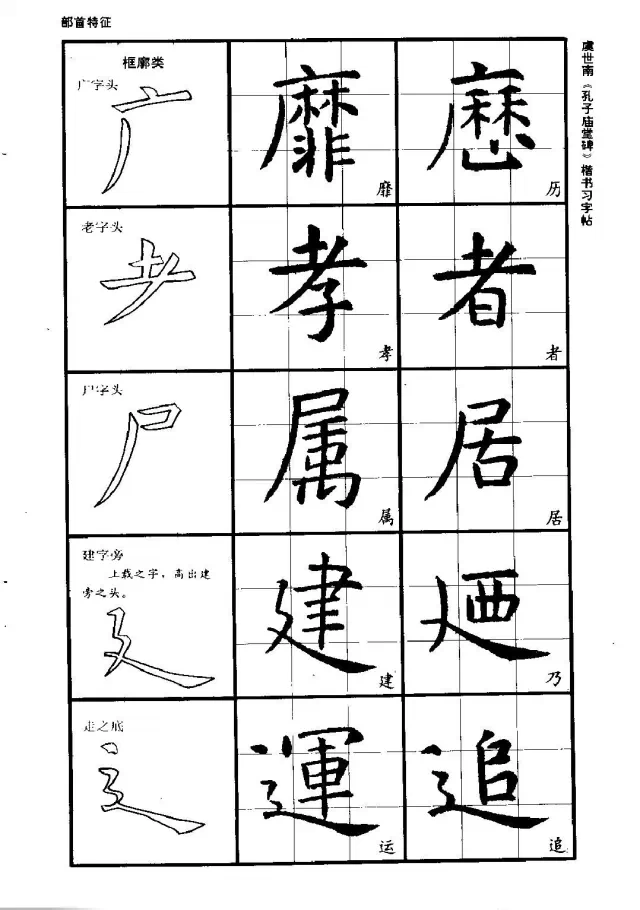 部首特征
虞世南《孔子庙堂碑》楷书习字帖
框廓类
广字头
广
靡
靡
歷
历
老字头
耂
孝
孝
者
者
尸字头
尸
属
属
居
居
建字旁
上载之字,高出建
旁之头。
廴
建
建
廼
乃
走之底
辶
運
运
追
追